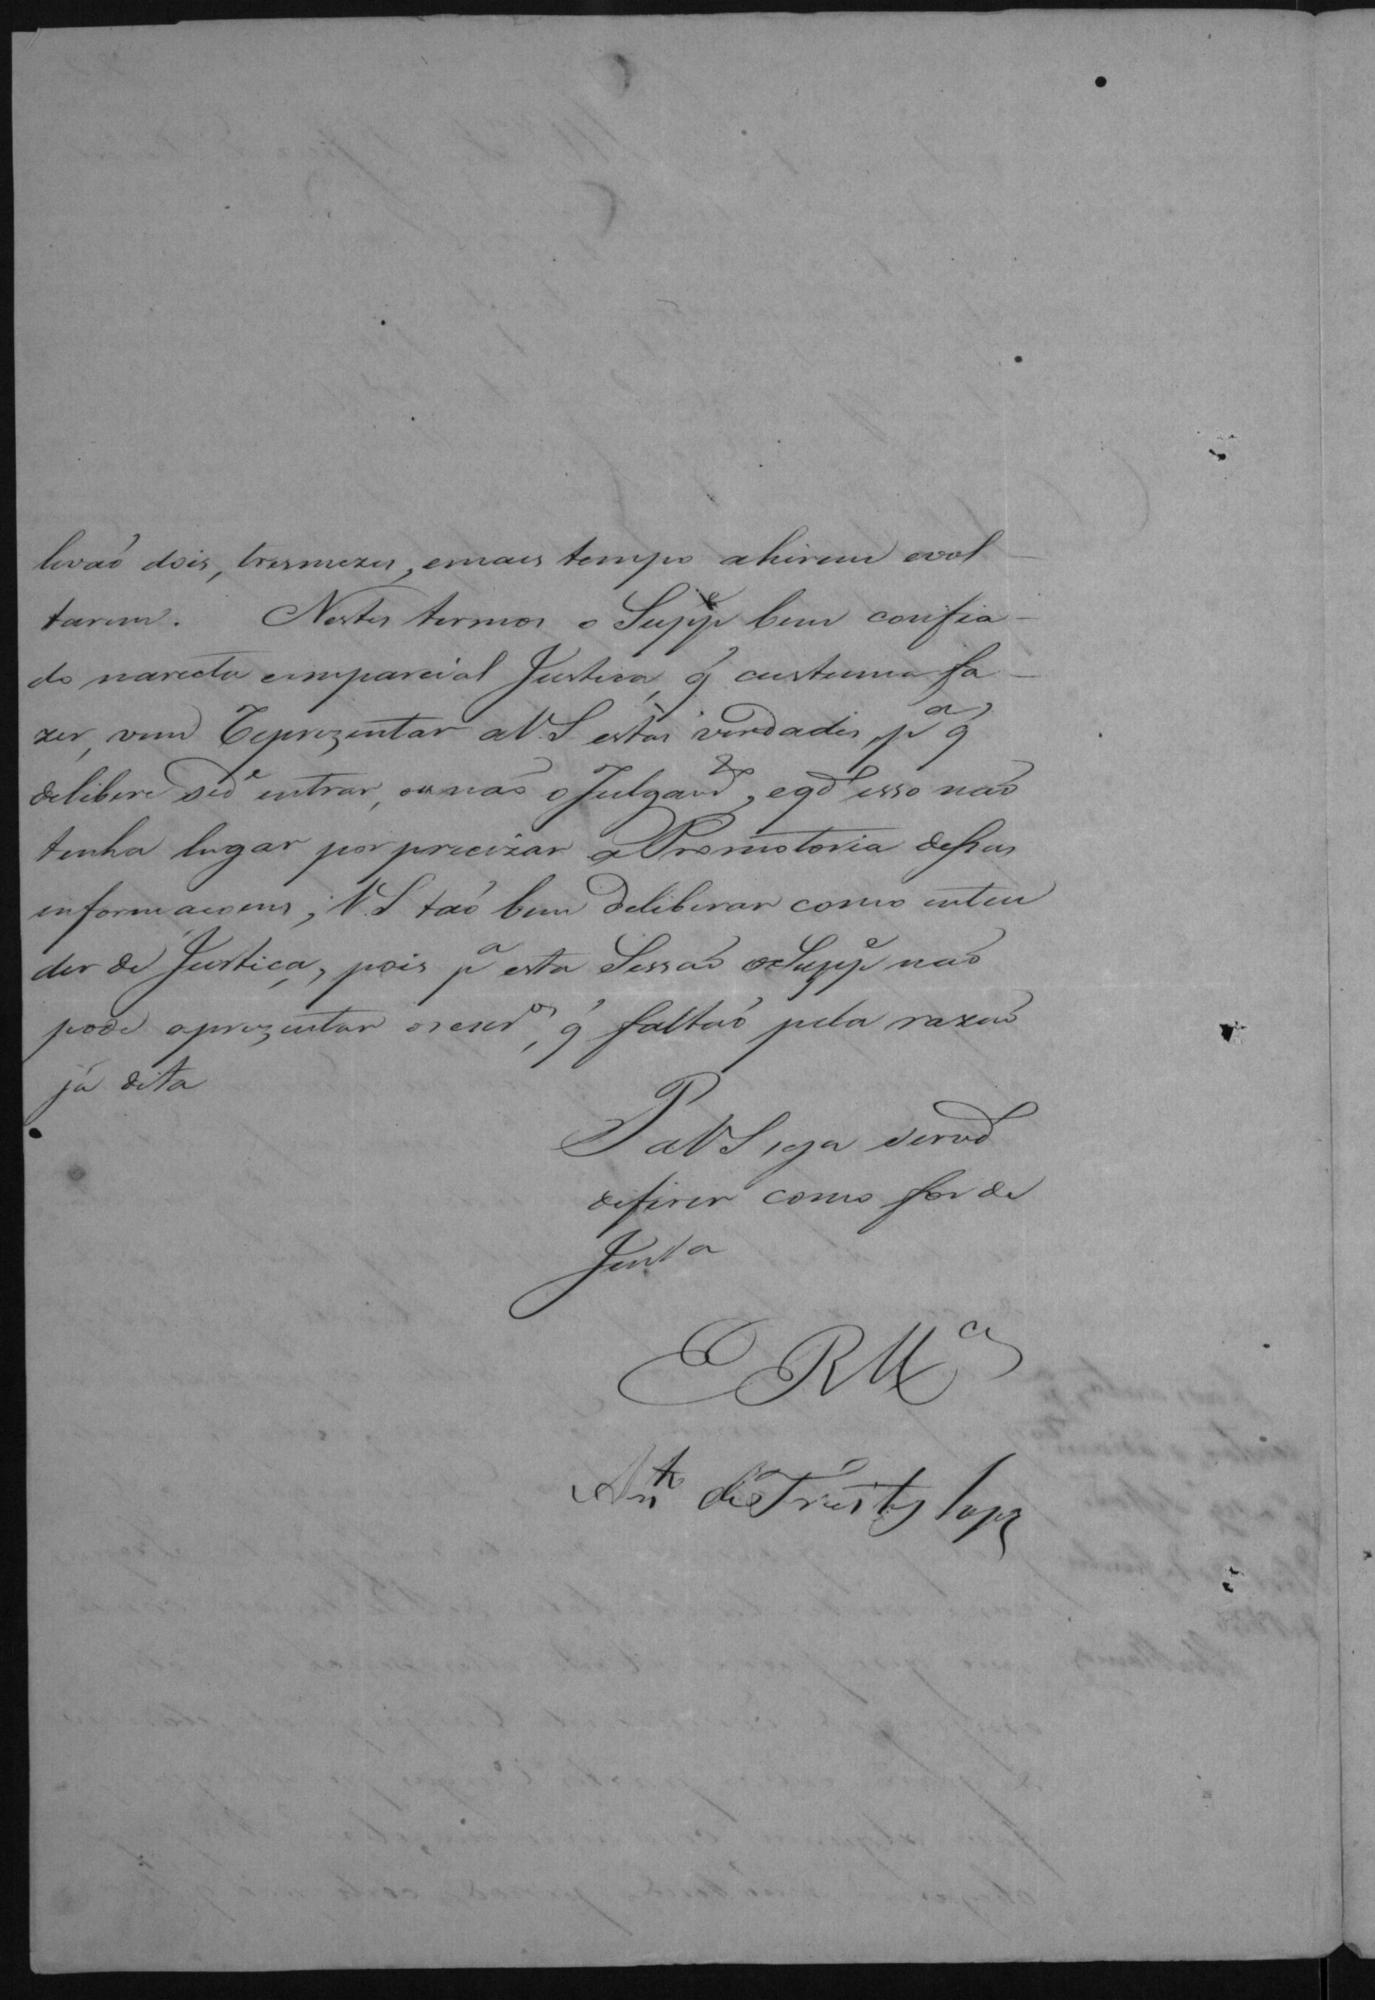 levaó dois, tresmezes, emais tempo ahirem evol-
tarem. Nestes termos o Supp.e bem confia-
do narecta eimparcial Justica, q̃ custuma fa-
zer, vem Reprezentar aV.S estas verdades, p.a q̃
delibere entrar, ounaó o Julgam.to, eqdo isso naó
tenha lugar por precizar a Promotoria dessas
informacoens, V.S taó bem deliberar como enten
der de Justiça, pois p.a esta Sessaó o Supp.e naó
pode aprezentar q̃ faltaó pela razaó
já dita
P aV.S seja servido
deferir como for de
Just.a
E R M.ca
Ant.o de Freitas Lopz